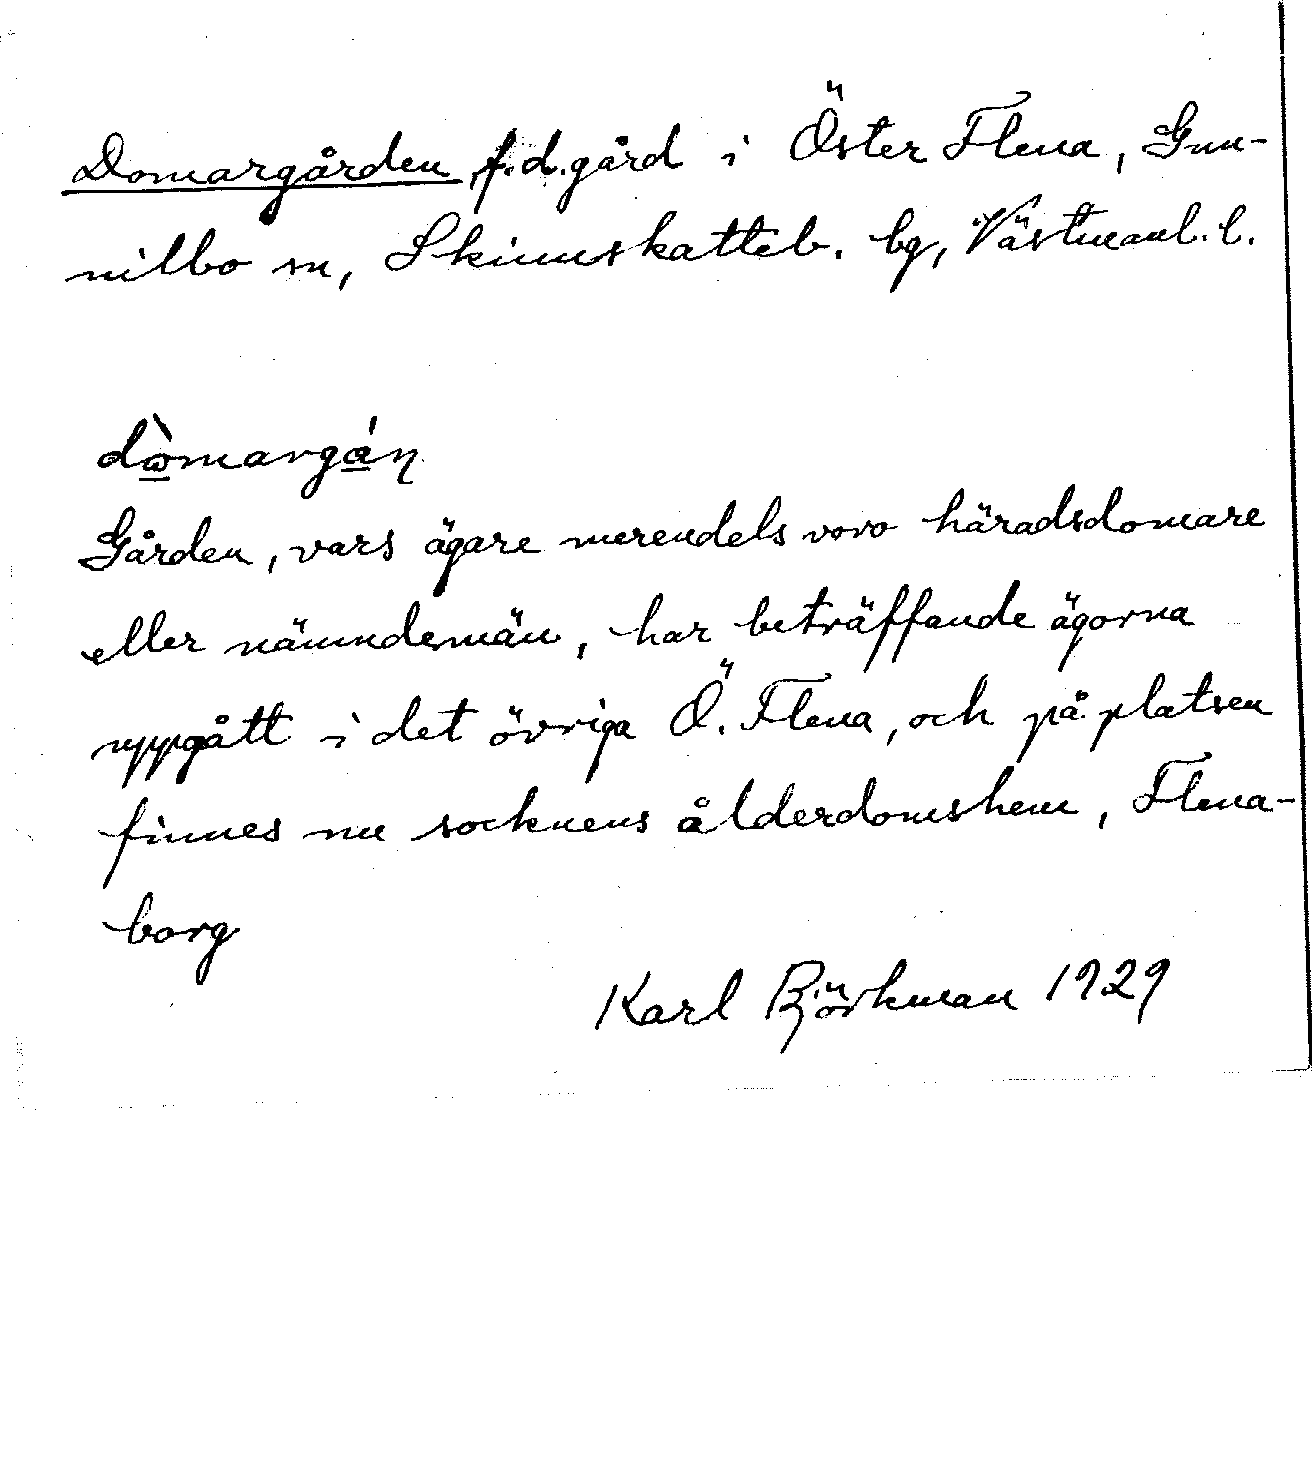 Domargården f.d. gård i Öster Flena, Gun-
nilbo sn, Skinnskatteb. bg, Västmanl. l.
dòmargáṇ
Gården, vars ägare merendels voro häradsdomare
eller nämndemän, har beträffande ägorna
uppgått i det övriga Ö. Flena, och på platsen
finnes nu socknens ålderdomshem, Flena-
borg
Karl Björkman 1929